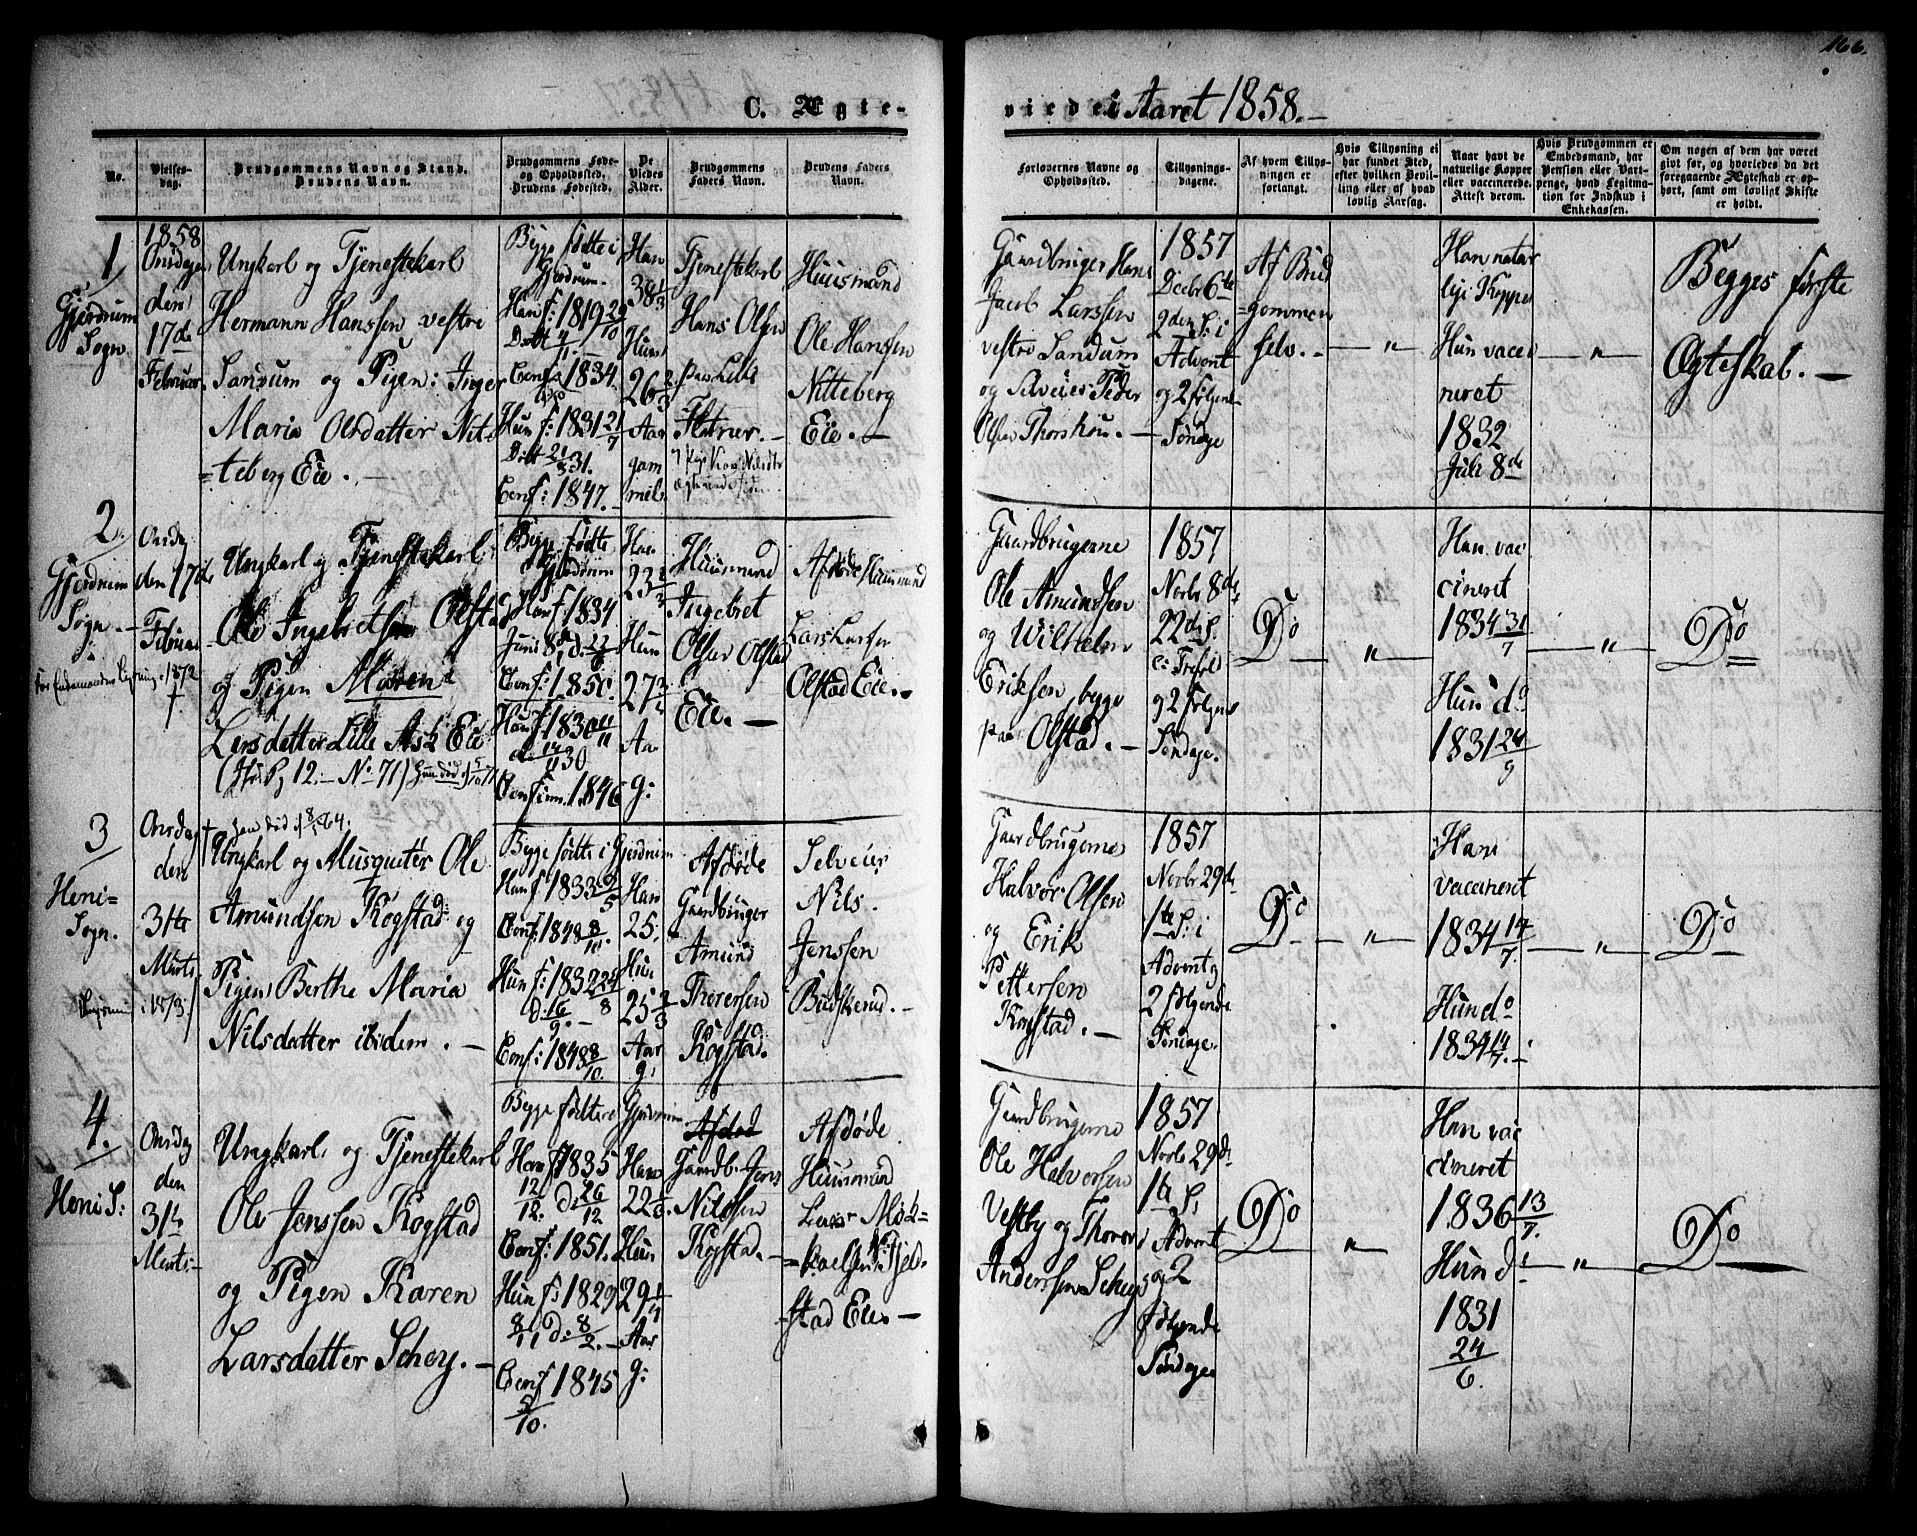 166.
C. Ægte-
viede i Aaret 1858.
No.
Vielses-
dag.
Brudgommens Navn og Stand.
Brudens Navn.
Brudgommens Føde-
og Opholdssted.
Brudens Fødested.
De
Viedes
Alder.
Brudgommens
Faders Navn.
Brudens Faders
Navn.
Forlovernes Navne og
Opholdssted.
Tillysnings-
dagene.
Af hvem Tillys-
ningen er
forlangt.
Hvis Tillysning ei
har fundet Sted,
efter hvilken Bevil-
ling eller af hvad
lovlig Aarsag.
Naar havt de
naturlige Kopper
eller vaccinerede.
Attest derom.
Hvis Brudgommen er
Embedsmand, har
Pension eller Vart-
penge, hvad Legitima-
tion for Indskud i
Enkekassen.
Om nogen af dem har været
givt før, og hvorledes da det
foregaaende Ægteskab er op-
hørt, samt om lovligt Skifte
er holdt.
1
Gjerdrum
Sogn.
1858
Onsdagen
den
17de
Februar
Ungkarl og Tjenestekarl
Hermann Hanssen vestre
Sandum og Pigen: Inger
Maria Olsdatter Nit-
teberg Eie.
Begge fødte i
Gjerdrum.
Han f: 1819 29/10
Døbt
Conf: 1834.
Hun f: 1831 21/7
Døbt 21/8 31.
Conf: 1847.
Han
38 1/3
Hun
26 2/3
Aar
gam
mel.
Tjenestekarl
Hans Olsen
paa Lille
Flatner.
Huusmand
Ole Hansen
Nitteberg
Eie.
Gaardbruger Hans
Jacob Larssen
vestre Sandum
og Selveier Peder
Olsen Thorshou.
1857
Decbr 6te
2den S: i
Advent
og 2 følgende
Søndage
Af Brud
=gommen
selv.
"
Han natur
lige Kopper
Hun vacci
neret
1832
Juli 8de
"
Begges første
Ægteskab.
2.
Gjerdrum
Sogn.
Onsdag
den 17de
Februar
Ungkarl og Tjenestekarl
Ole Ingebretsen Olstad
og Pigen Maren
Larsdatter Lille Ask Eie
(Hus Pz 12. No 71)
Begge fødte
i Gjerdrum
Han f. 1834
Juni 8de
Conf: 1850.
Hun f: 1830
Confirm. 1846
Han
23 2/3
Hun
27 1/4
Aar
g:
Huusmand
Ingebret
Olsen Olstad
Eie.
Afdøde Huusmand
Lars Larsen
Olstad Eie.
Gaardbrugerne
Ole Amundsen
og Wilhelm
Eriksen, begge
paa Olstad.
1857
Novbr 8de
22de S.
e: Trefol
og 2 følgende
Søndage.
Do
"
Han vac
cineret
1834 31/7
Hun do
1831 24/9
"
Do
3
Heni-
Sogn.
Onsdag
den
31te
Marts
Han død 8/1 64.
Ungkarl og Musqueteer Ole
Amundsen Kogstad og
Pigen Berthe Maria
Nilsdatter ibidem.
Begge fødte i Gjerdrum
Han f 1833 9/5
Conf: 1848 8/10.
Hun f: 1832 24/8
d: 16/9.
Conf: 1848 8/10.
Han
25.
Hun
25 2/3
Aar
g.
Afdøde
Gaardbruger
Amund
Thoresen
Kogstad.
Selveier
Nils
Jenssen
Budskerud.
Gaardbrugerne
Halvor Olsen
og Erik
Pettersen
Kogstad.
1857
Novbr 29de
1te S: i
Advent og
2 følgende
Søndage.
Do
"
Han
vaccineret
1834 14/7
Hun do
1834 14/7.
"
Do
4.
Heni S:
Onsdag
den
31te
Marts
Ungkarl og Tjenestekarl
Ole Jenssen Kogstad
og Pigen Karen
Larsdatter Schey.
Begge fødte i Gjerdrum
Han f 1835
12/12. D: 26/12
Conf: 1851.
Hun f: 1829
8/11 d: 8/2.
Conf 1845
5/10.
Han
22 1/3
Hun
29 1/4
Aar
g:
Afdød
Gaardb. Jens
Nilssen
Kogstad.
Afdøde
Huusmand
Lars Mik-
=kaelsen Fjeld-
=stad Eie.
Gaardbrugerne
Ole Halvorsen
Vestby og Thorer
Anderssen Schey
1857
Novbr 29de
1te S. i
Advent
og 2
følgende
Søndage
Do
"
Han vac
cineret
1836 13/7.
Hun d
1831
24/6.
"
Do